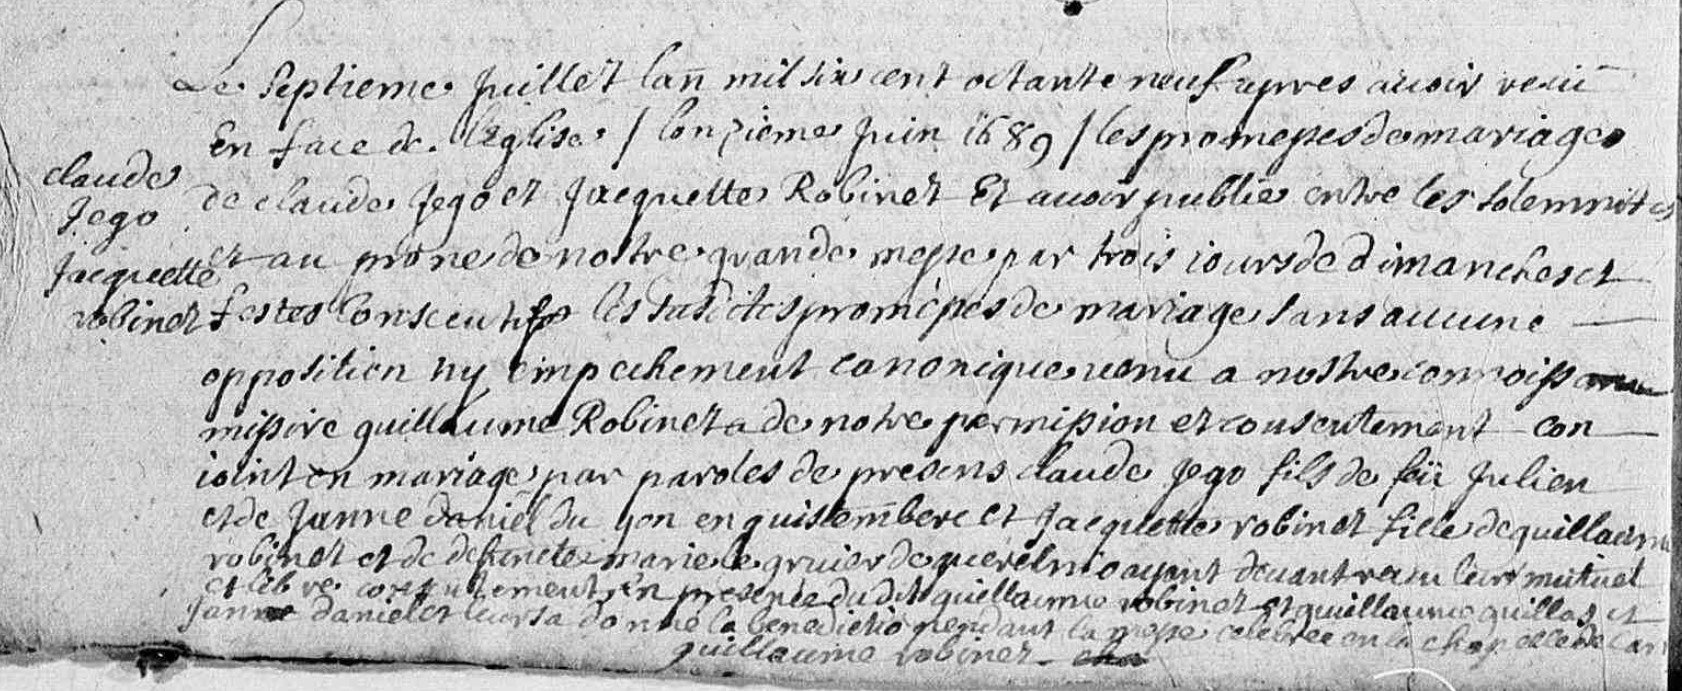 Le septieme juillet lan mil six cent octante neuf apres avoir receu
En face de l'eglise / lonzieme juin 1689 / les promesses de mariage
claude
de claude jego et jacquette Robinet Et avoir publié entre les solemnites
jego
et au prone de nostre grande messe par trois iours de dimanches et
jacquette
festes consecutifs les susdites promesses de mariage sans aucune
robinet
opposition ny empechement canonique venu a nostre connoissance
missire guillaume Robinet a de notre permission et consentement con
ioint en mariage par paroles de presens claude jego fils de feü julien
et de janne daniel du gon en questembert et jacquette robinet fille de guillaume
robinet et de defuncte marie le gruier de querelmio ayant devant receu leur mutuel
et libre consentement, en presence dudit guillaume robinet et guillaume guillos et
janne daniel et leurs a donné la benediction pendant la messe celebree en la chapelle de
guillaume robinet